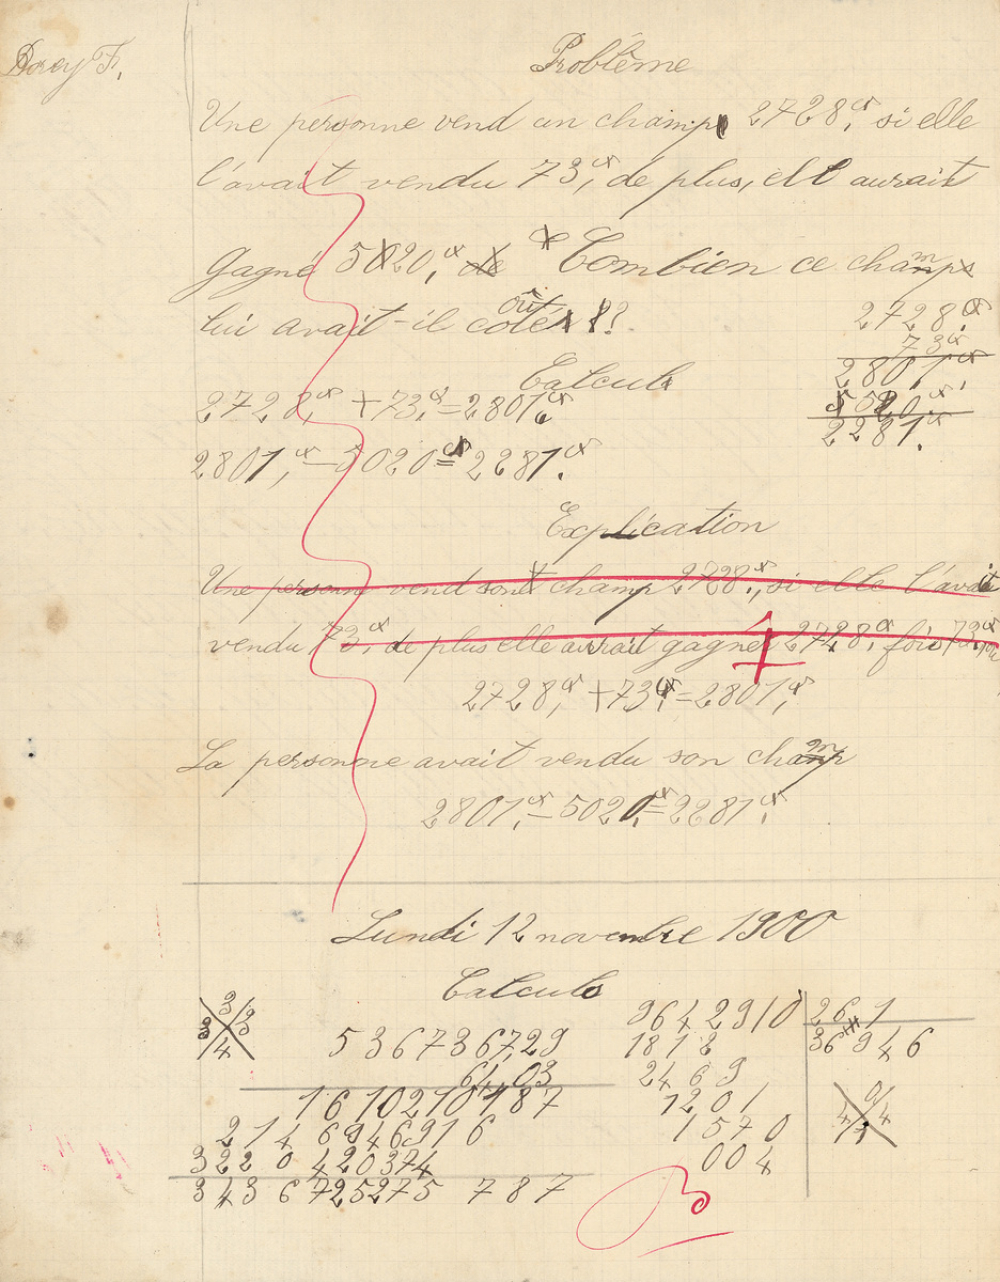 Darcy F.
Problème
Une personne vend un champ 2728,fr si elle
l'avait vendu 73,fr de plus, ell aurait
Gagné 5020,fr de Combien ce champs
lui avait-il coûté ??
2728,fr
73fr
2801,fr
5520,fr
2281,fr
Calculs
2728,fr + 73,fr = 2801,fr
2801,fr — 5020 fr = 2281,fr
Explication
Une personn vend sont champ 2728fr, si elle l'avait
vendu 73,fr de plus elle aurait gagnér 2728,fr fois 73,fr
2728,fr + 73,fr = 2801,fr
La personne avait vendu son champ
2801,fr — 5020,fr = 2281,fr
Lundi 12 novembre 1900
Calculs
3
3 3
4
536736729
64,03
1610210187
2146946916
3220420374
343 6 725275 787
9642910 261
1818 36946
2469
1201
1570
004
0
4 4
1
B